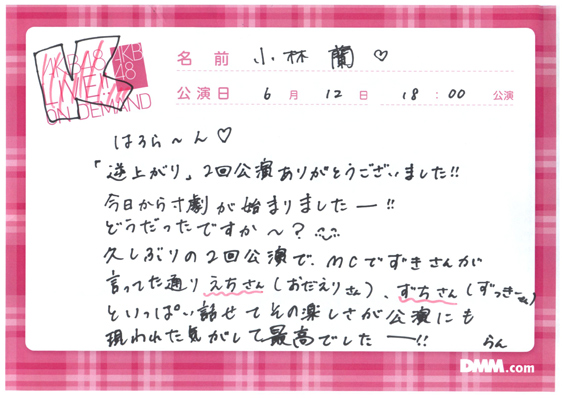 AKB48
AKB
48
LIVE!!
ON DEMAND
K
名前 小林 蘭 ♡
公演日 6月 12日 18:00 公演
はろら〜ん♡
「逆上がり」2回公演ありがとうございました!!
今日から寸劇が始まりましたー!!
どうだったですか〜?
久しぶりの2回公演で、MCでずきさんが
言ってた通りえちさん(おだえりさん)、ずちさん(ずっきーさん)
といっぱい話せてその楽しさが公演にも
現われた気がして最高でしたー!!
らん
DMM.com